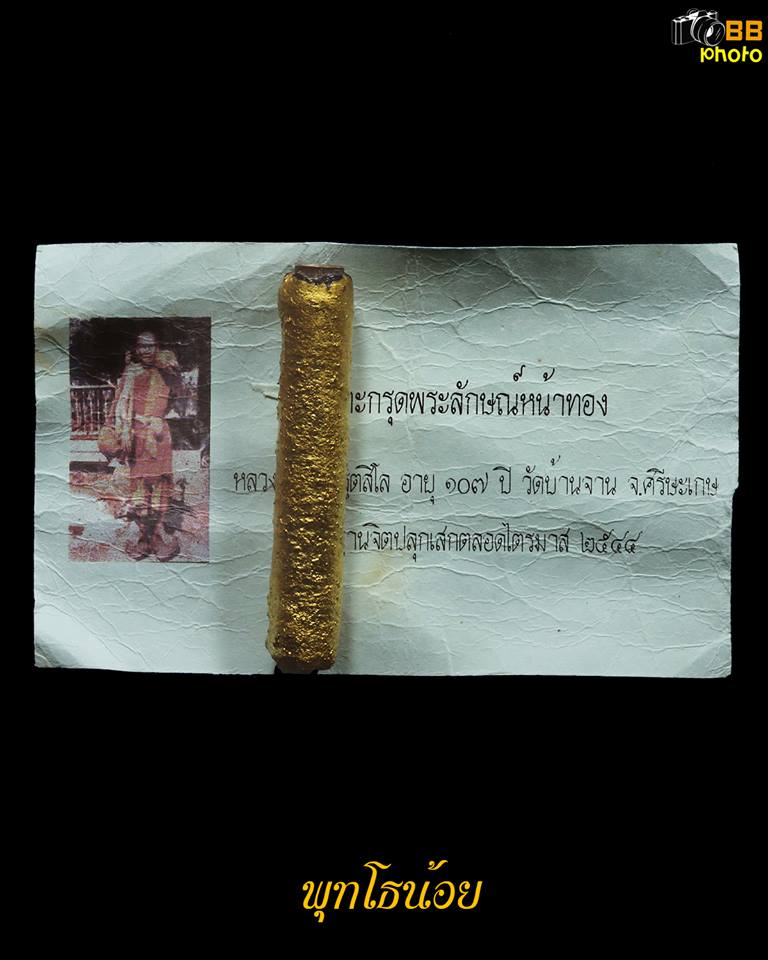 BB
photo
ะกรุดพระลักษณ์หน้าทอง
หลวง ตสีโล อายุ ๑๐๗ ปี วัดบ้านจาน จ.ศรีษะเกษ
านจิตปลุกเสกตลอดไตรมาส ๒๕๔๔
พุทโธน้อย